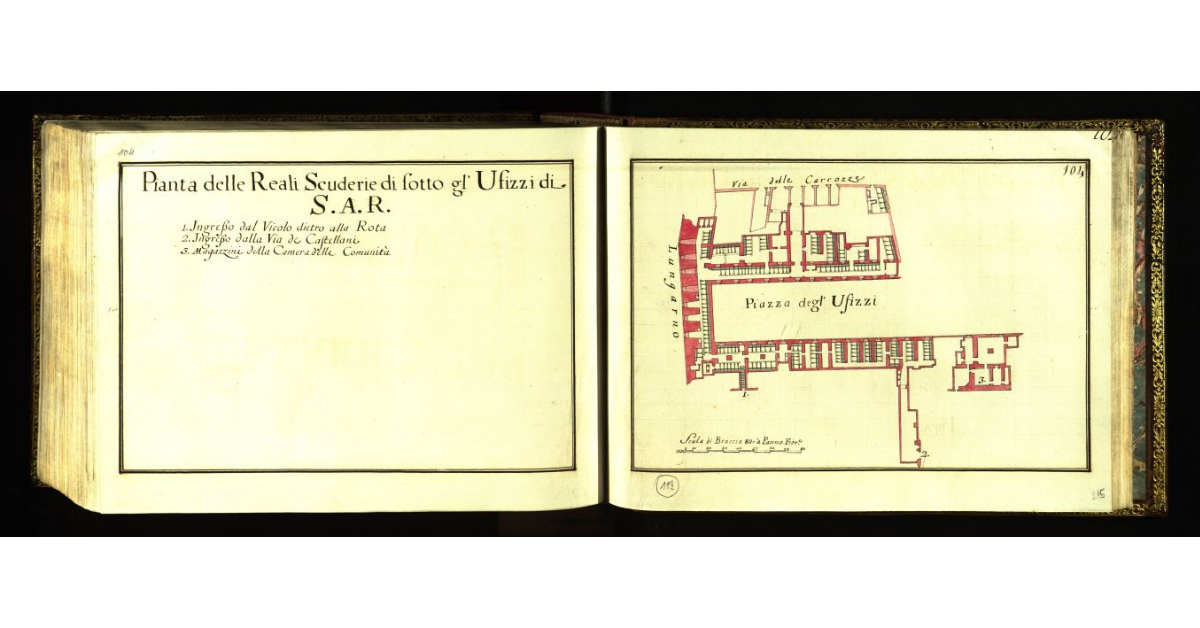 104
Pianta delle Reali Scuderie di sotto gl' Ufizzi di
S.A.R.
1. Ingreſso dal Vicolo dietro alla Rota
2. Ingreſso dalla Via de Castellani
3. Magazzini della Camera delle Comunità
104
Via delle Carrozze
Lungarno
Piazza degl' Ufizzi
3.
1.
2.
Scala di Braccia 80 a Panno Fior.
113
215